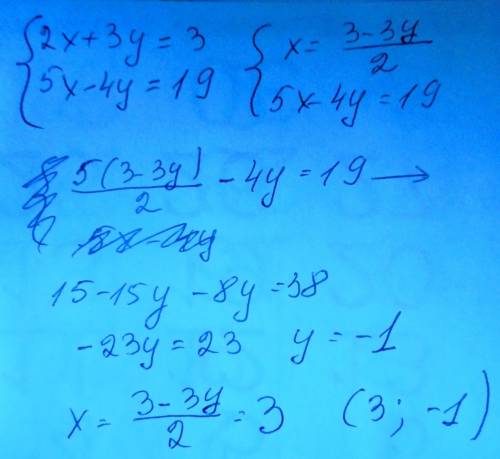 {2x+3y=3 {x= (3-3y)/2
{5x-4y=19 {5x-4y=19
5(3-3y)/2 -4y=19 →
15-15y-8y=38
-23y=23 y=-1
x= (3-3y)/2 =3 (3; -1)